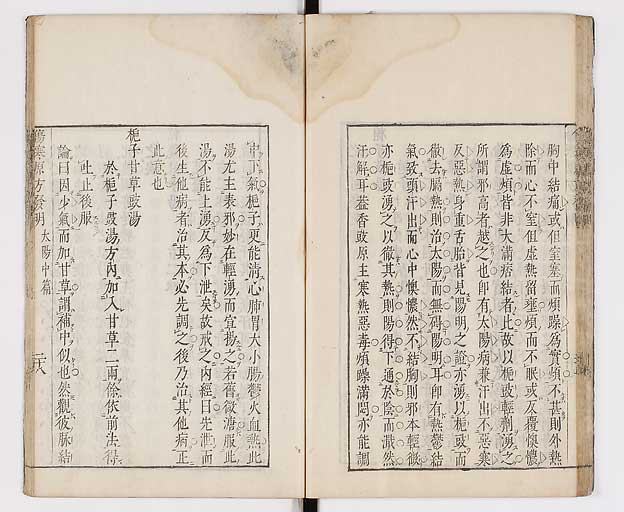 胸中結痛或但窒塞而煩躁為實煩不甚則外熱
除而心不窒但虛熱留壅煩而不眠或反覆懊憹
為虛煩皆非大滿痞結者比故以梔豉輕劑湧之
所謂邪高者越之也即有太陽病兼汗出不惡寒
反惡熱身重舌胎皆見陽明之證亦湧以梔豉而
徹去膈熱則治太陽而無碍陽明耳即有熱鬱結
氣致頭汗出而心中懊憹然不結胸則邪本輕微
亦梔豉湧之以徹其熱則陽得下通於陰而濈然
汗解耳蓋香豉原主寒熱惡毒煩躁滿悶亦能調
中下氣梔子更能清心肺胃大小腸鬱火血熱此
湯尤主表邪妙在輕湧而宜揚之若舊微溏服此
湯不能上湧反為下泄矣故戒之內經曰先泄而
後生他病者治其本必先調之後乃治其他病正
此意也
梔子甘草豉湯
於梔子豉湯方內加入甘草二兩餘依前法得
吐止後服
論曰因少氣而加甘草謂補中似也然觀彼脉結
傷寒原方發明 太陽中篇 二八